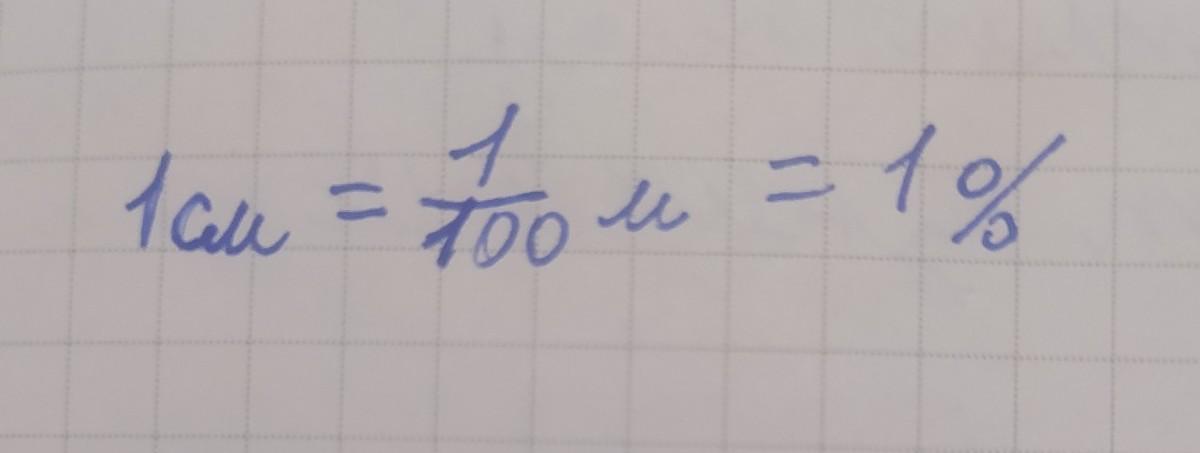 1см = 1/100 м = 1%